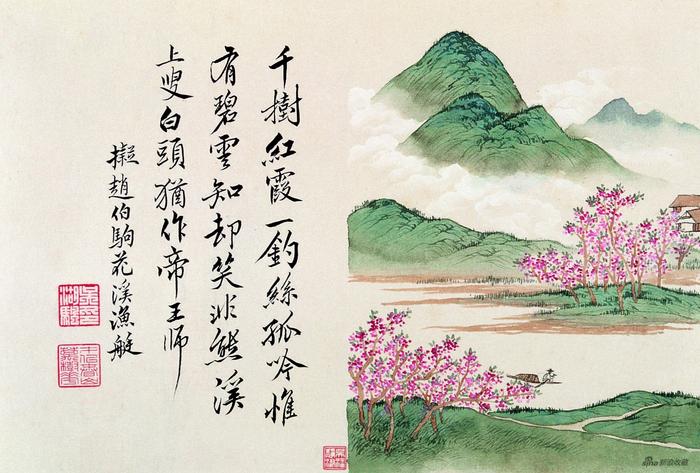 千樹紅霞一釣絲孤吟惟
有碧雲知却笑非熊溪
上叟白頭猶作帝王師
擬趙伯駒花溪漁艇
sina 新浪收藏